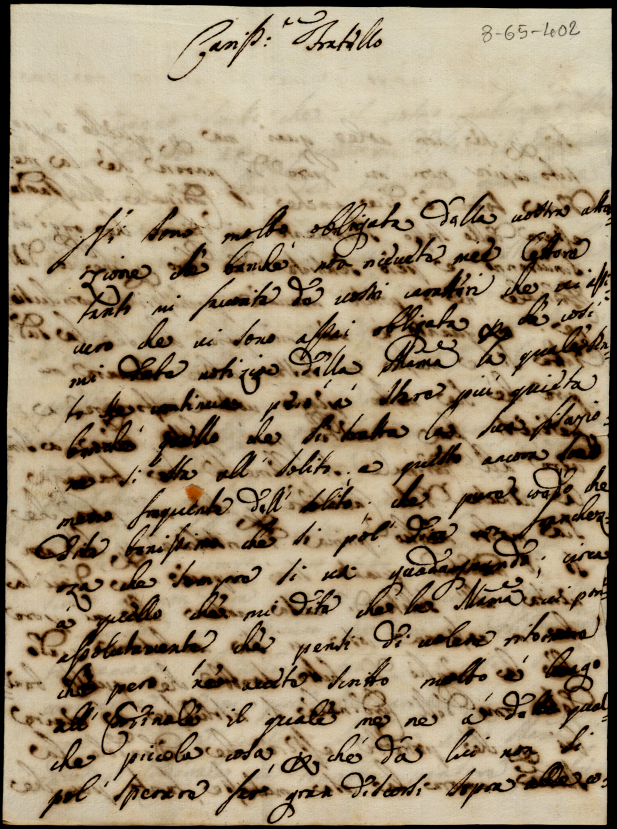 8-65-402
Cariss:mo Fratello
Vi sono molto obligata della vostra atten
zione che benche non ricevuta nel
tanto mi favorite de vostri caratteri che vi assi
curo che vi sono assai obligata & che così
mi date notizia della Mamma la quale
continua però a stare più quieta
benche quello che si tratta la sua
ne si sta all solito. e questo ancora
meno frequenta dell solito. che pure vedo che
dite benissimo che si pol dire con
za che sempre si va guadagnando, circa
a quello che mi dite che la Mamma vi
assolutamente che penti di volere ritornare
che però ne avete scritto molto a lungo
all Cardinale il quale me ne à dette qual
che piccola cosa & che da lui non si
pol sperare far gran discorsi sopra alle co